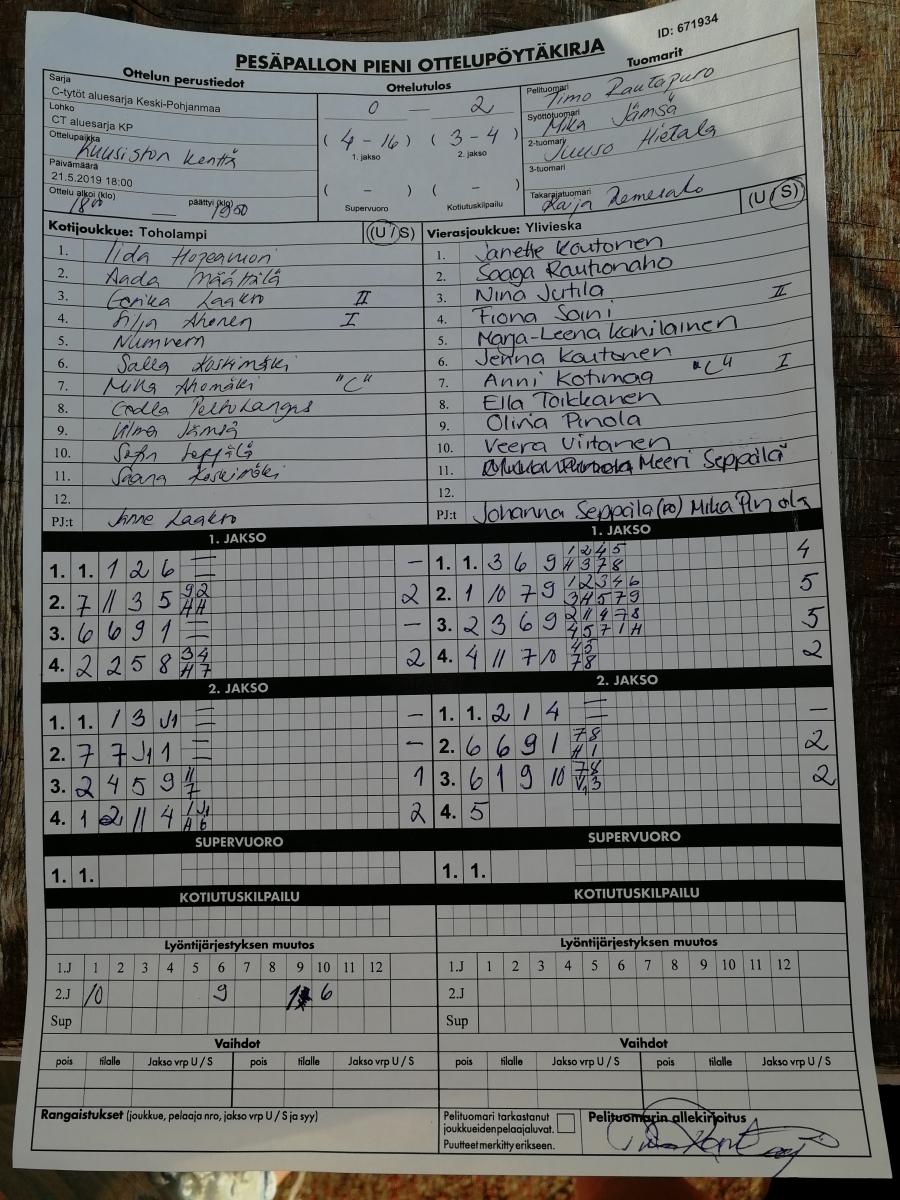 ID: 671934
PESÄPALLON PIENI OTTELUPÖYTÄKIRJA
Ottelun perustiedot
Sarja
C-tytöt aluesarja Keski-Pohjanmaa
Lohko
CT aluesarja KP
Ottelupaikka
Kuusiston kenttä
Päivämäärä
21.5.2019 18:00
Ottelu alkoi (klo) päättyi (klo)
18 00 — 1950
Ottelutulos
0 — 2
( 4 - 16 ) ( 3 - 4 )
1. jakso 2. jakso
( - ) ( - )
Supervuoro Kotiutuskilpailu
Tuomarit
Pelituomari
Timo Rautapuro
Syöttötuomari
Mika Jämsä
2-tuomari
Juuso Hietala
3-tuomari
Takarajatuomari
Kaija
(U/S)
Kotijoukkue: Toholampi (U/S)
1. Iida
2. Aada Määttälä
3. Eerika Laakro II
4. Silja Ahonen I
5.
6. Salla Koskimäki
7. Ahomäki "C"
8.
9. Vilma Jämsä
10. Seppälä
11. Saana Koskimäki
12.
PJ:t Janne Laakro
Vierasjoukkue: Ylivieska
1. Janette Koutonen
2. Saaga Rautionaho
3. Nina Jutila II
4. Fiona Saini
5. Marja-Leena Kahilainen
6. Jenna Koutonen
7. Anni Kotimaa "C" I
8. Ella Toikkanen
9. Olivia Pinola
10. Veera Virtanen
11. Meeri Seppälä
12.
PJ:t Johanna Seppälä (ro) Mika Pinola
1. JAKSO
1. 1. 1 2 6 –
2. 7 11 3 5 92 HH 2
3. 6 6 9 1 –
4. 2 2 5 8 34 H7 2
1. JAKSO
1. 1. 3 6 9 1245 H378 4
2. 1 10 7 9 12346 34579 5
3. 2 3 6 9 211478 4571H 5
4. 4 11 7 10 45 78 2
2. JAKSO
1. 1. 1 3 J1 –
2. 7 7 J1 1 –
3. 2 4 5 9 11 7 1
4. 1 2 11 4 1J1 H6 2
2. JAKSO
1. 1. 2 1 4 –
2. 6 6 9 1 78 H1 2
3. 6 1 9 10 78 V13 2
4. 5
SUPERVUORO
1. 1.
SUPERVUORO
1. 1.
KOTIUTUSKILPAILU
KOTIUTUSKILPAILU
Lyöntijärjestyksen muutos
1.J 1 2 3 4 5 6 7 8 9 10 11 12
2.J 10 9 6
Sup
Lyöntijärjestyksen muutos
1.J 1 2 3 4 5 6 7 8 9 10 11 12
2.J
Sup
Vaihdot
pois tilalle Jakso vrp U / S pois tilalle Jakso vrp U / S
Vaihdot
pois tilalle Jakso vrp U / S pois tilalle Jakso vrp U / S
Rangaistukset (joukkue, pelaaja nro, jakso vrp U / S ja syy)
Pelituomari tarkastanut
joukkueiden pelaajaluvat.
Puutteet merkitty erikseen.
Pelituomarin allekirjoitus